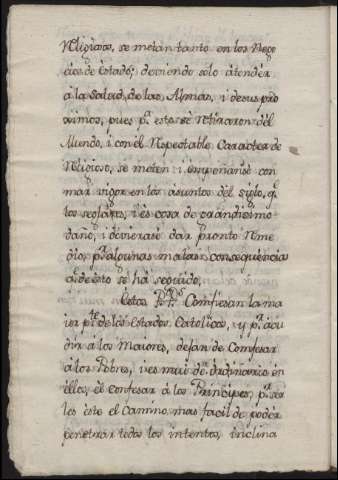 Religiosos, se metan tanto en los Nego
cios de Estado; deviendo solo atendér
á la Salud de las Almas, i de sus pro
ximos, pues pª. esto se Retiraron del
Mundo, i con él Respectable Caracter de
Religioso, se meten i empeñanse con
mas vigor en los asuntos del siglo, q.
los seglares, i és cosa de grandissimo
daño, i devierase dar pronto Reme
dio, pr. algunas malas consequencias
q. de esto se há seguido.
Estos PP.s Confiesan la ma
ior pte. de los Estados Catolicos, y pª. acu
dir á los Maiores, dejan de Confesar
á los Pobres, i es mui de ordinario en
ellos, el confesar á los Principes, pr. ser
les este el Camino mas facil de podér
penetrar todos los intentos, inclina